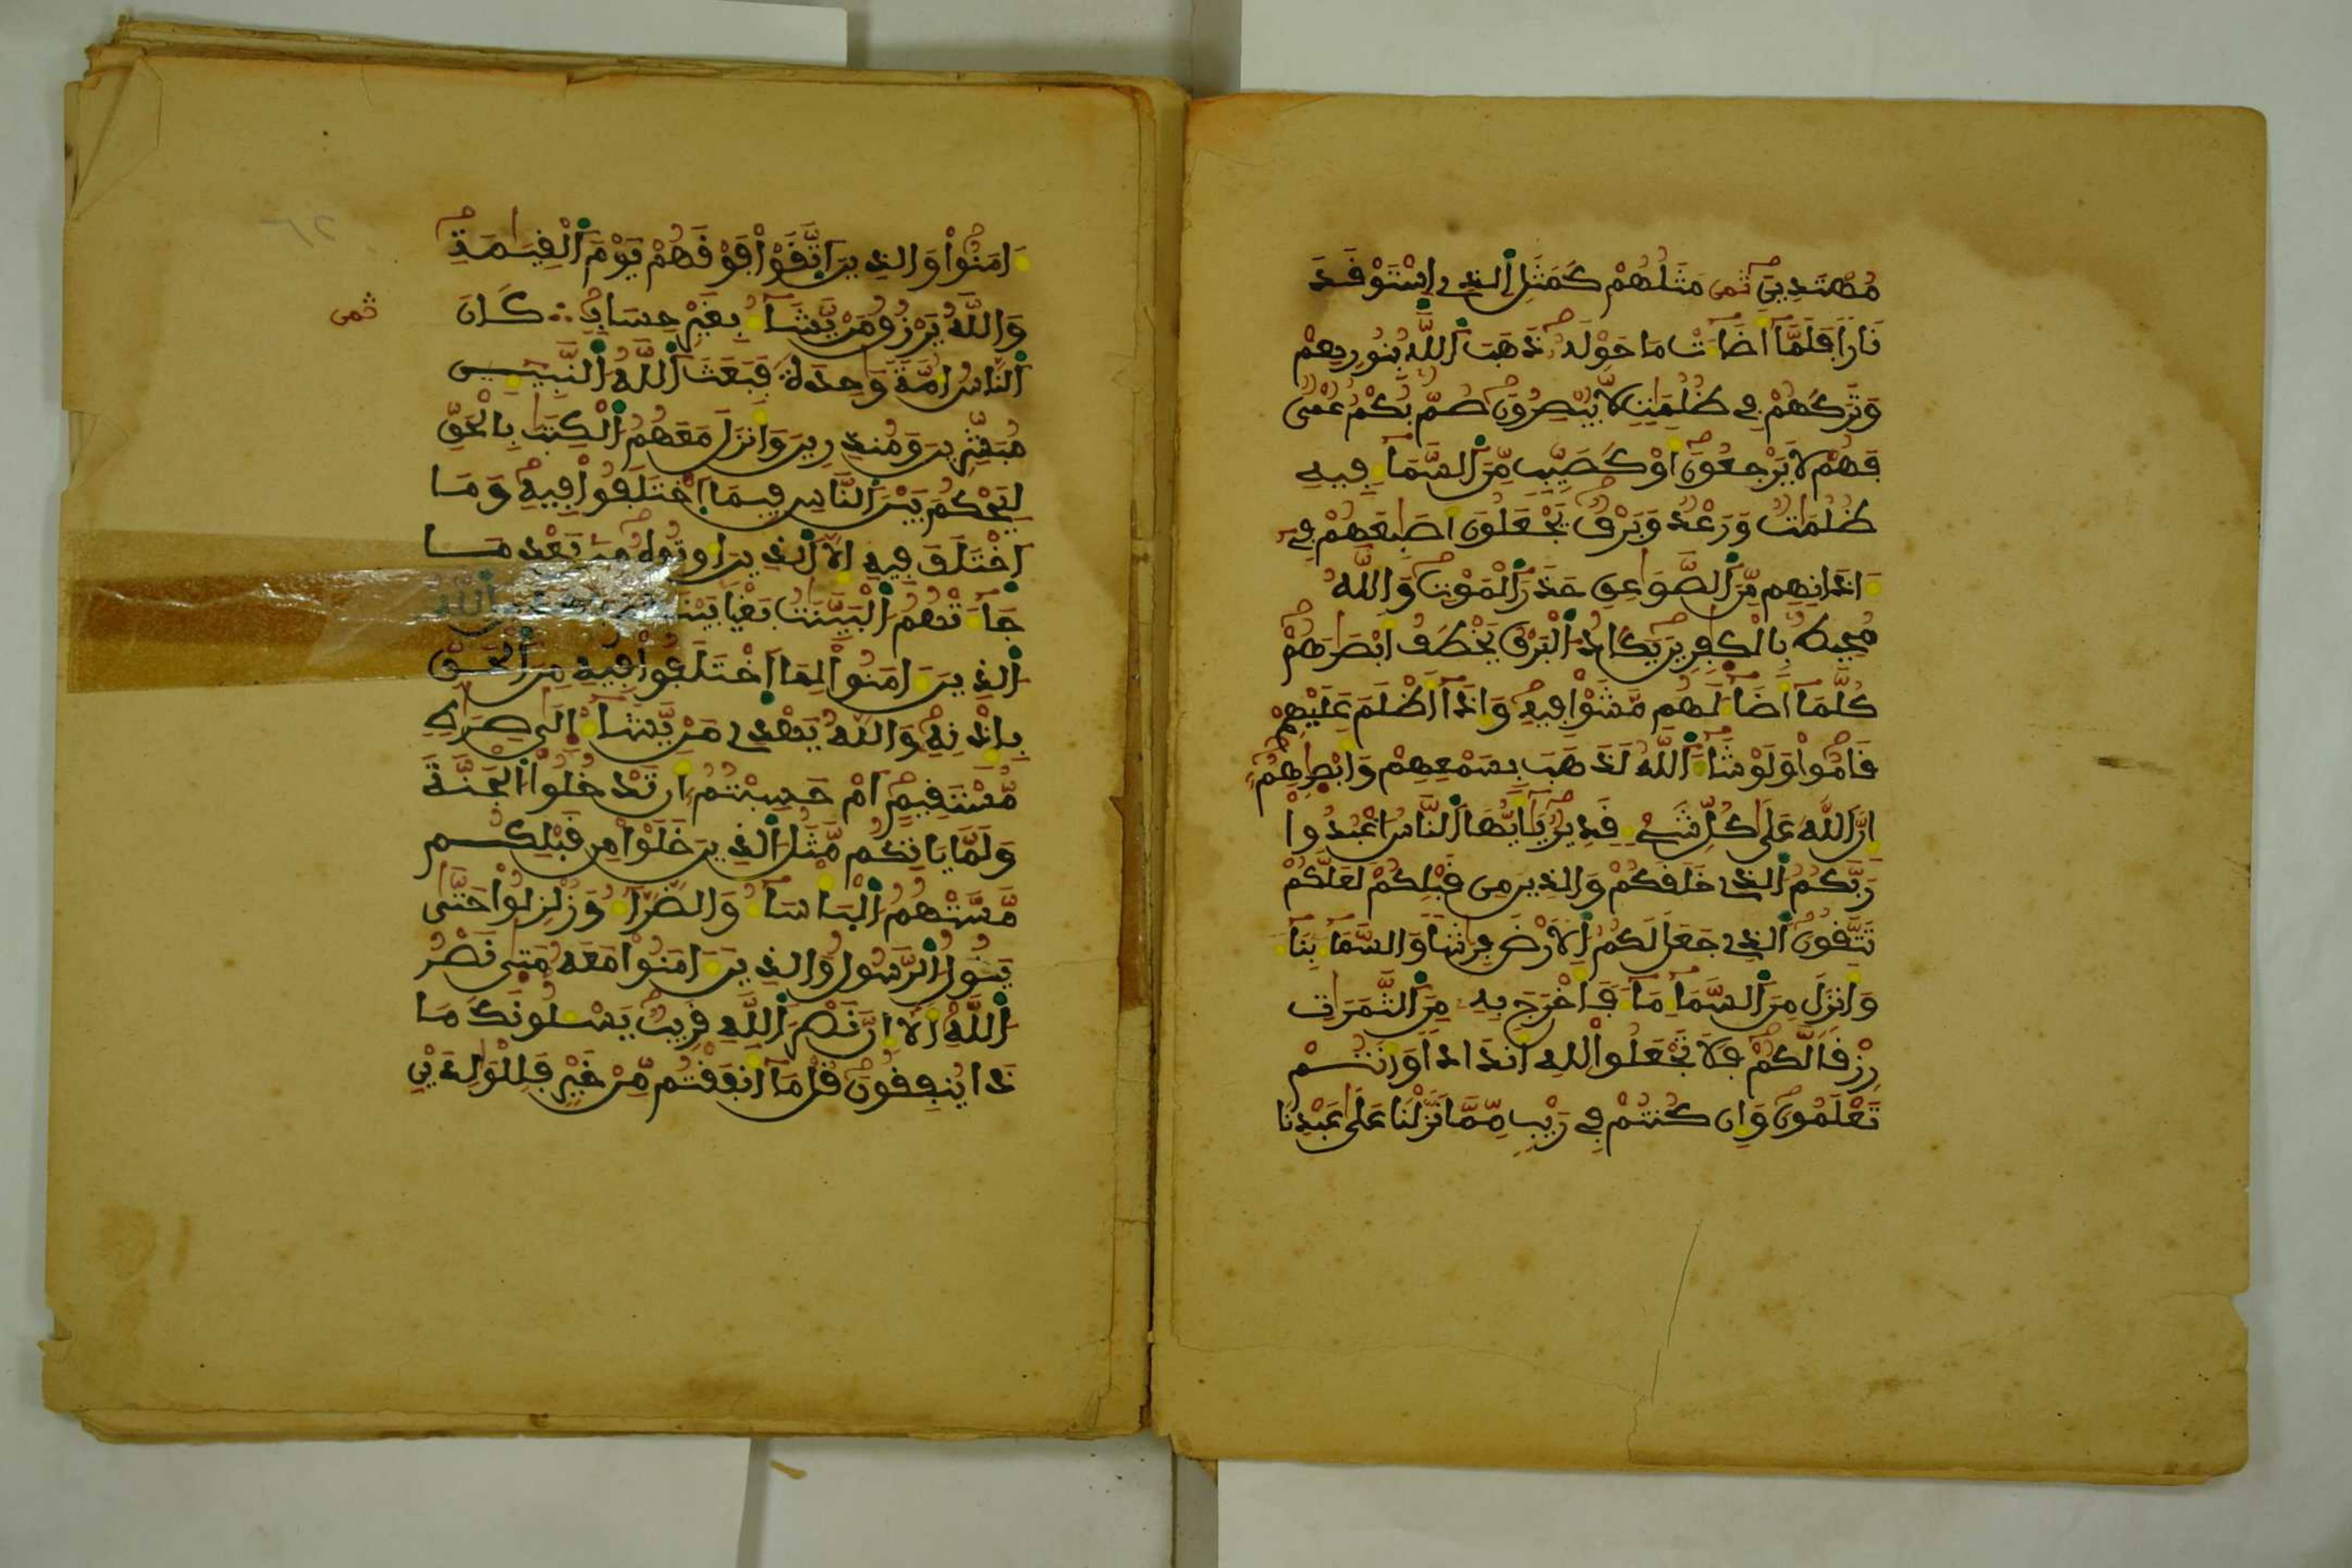 مُهْتَدِينَ ثمن مَثَلُهُمْ كَمَثَلِ اِ۬لذِے اِسْتَوْقَدَ
نَاراً فَلَمَّآ أَضَآءَتْ مَا حَوْلَهُۥ ذَهَبَ اَ۬للَّهُ بِنُورِهِمْ
وَتَرَكَهُمْ فِے ظُلُمَٰتٖ لَّا يُبْصِرُونَ صُمُّۢ بُكْمٌ عُمْىٞ
فَهُمْ لَا يَرْجِعُونَ أَوْ كَصَيِّبٖ مِّنَ اَ۬لسَّمَآءِ فِيهِ
ظُلُمَٰتٞ وَرَعْدٞ وَبَرْقٞ يَجْعَلُونَ أَصَٰبِعَهُمْ فِےٓ
ءَاذَانِهِم مِّنَ اَ۬لصَّوَٰعِقِ حَذَرَ اَ۬لْمَوْتِ وَاللَّهُ
مُحِيطُۢ بِالْكٰفِرِينَ يَكَادُ اُ۬لْبَرْقُ يَخْطَفُ أَبْصَٰرَهُمْ
كُلَّمَآ أَضَآءَ لَهُم مَّشَوْاْ فِيهِ وَإِذَآ أَظْلَمَ عَلَيْهِمْ
قَامُواْ وَلَوْ شَآءَ اَ۬للَّهُ لَذَهَبَ بِسَمْعِهِمْ وَأَبْصٰرِهِمُۥٓ
إِنَّ اَ۬للَّهَ عَلَىٰ كُلِّ شَےْءٖ قَدِيرٞ يَٰٓأَيُّهَا اَ۬لنَّاسُ اُ۟عْبُدُواْ
رَبَّكُمُ اُ۬لذِے خَلَقَكُمْ وَالذِينَ مِن قَبْلِكُمْ لَعَلَّكُمْ
تَتَّقُونَ اَ۬لذِے جَعَلَ لَكُمُ اُ۬لَارْضَ فِرَٰشاٗ وَالسَّمَآءَ بِنَآءٗ
وَأَنزَلَ مِنَ اَ۬لسَّمَآءِ مَآءٗ فَأَخْرَجَ بِهِۦ مِنَ اَ۬لثَّمَرَٰتِ
رِزْقاٗ لَّكُمْ فَلَا تَجْعَلُواْ لِلهِ أَندَاداٗ وَأَنتُمْ
تَعْلَمُونَ وَإِن كُنتُمْ فِے رَيْبٖ مِّمَّا نَزَّلْنَا عَلَىٰ عَبْدِنَا
ءَامَنُواْ وَالذِينَ اَ۪تَّقَوْاْ فَوْقَهُمْ يَوْمَ اَ۬لْقِيَٰمَةِ
وَاللَّهُ يَرْزُقُ مَنْ يَّشَآءُ بِغَيْرِ حِسَابٖ ∴ كَانَ
ثمن
اَ۬لنَّاسُ أُمَّةٗ وَٰحِدَةٗ فَبَعَثَ اَ۬للَّهُ اُ۬لنَّبِيٓـِٕينَ
مُبَشِّرِينَ وَمُنذِرِينَ وَأَنزَلَ مَعَهُمُ اُ۬لْكِتَٰبَ بِالْحَقِّ
لِيَحْكُمَ بَيْنَ اَ۬لنَّاسِ فِيمَا اَ۪خْتَلَفُواْ فِيهِ وَمَا
اَ۪خْتَلَفَ فِيهِ إِلَّا اَ۬لذِينَ أُوتُوهُ مِنۢ بَعْدِ مَا
جَآءَتْهُمُ اُ۬لْبَيِّنَٰتُ بَغْياَۢ بَيْنَهُمْ اَ۬للَّهُ
اُ۬لذِينَ ءَامَنُواْ لِمَا اَ۪خْتَلَفُواْ فِيهِ مِنَ اَ۬لْحَقِّ
بِإِذْنِهِۦ وَاللَّهُ يَهْدِے مَنْ يَّشَآءُ اِ۪لَىٰ صِرَٰطٖ
مُّسْتَقِيمٍ أَمْ حَسِبْتُمُۥٓ أَن تَدْخُلُواْ اُ۬لْجَنَّةَ
وَلَمَّا يَاتِكُم مَّثَلُ اُ۬لذِينَ خَلَوْاْ مِن قَبْلِكُم
مَّسَّتْهُمُ اُ۬لْبَأْسَآءُ وَالضَّرَّآءُ وَزُلْزِلُواْ حَتَّىٰ
يَقُولُ اُ۬لرَّسُولُ وَالذِينَ ءَامَنُواْ مَعَهُۥ مَتَىٰ نَصْرُ
اُ۬للَّهِ أَلَآ إِنَّ نَصْرَ اَ۬للَّهِ قَرِيبٞ يَسْـَٔلُونَكَ مَا
ذَا يُنفِقُونَ قُلْ مَآ أَنفَقْتُم مِّنْ خَيْرٖ فَلِلْوَٰلِدَيْنِ